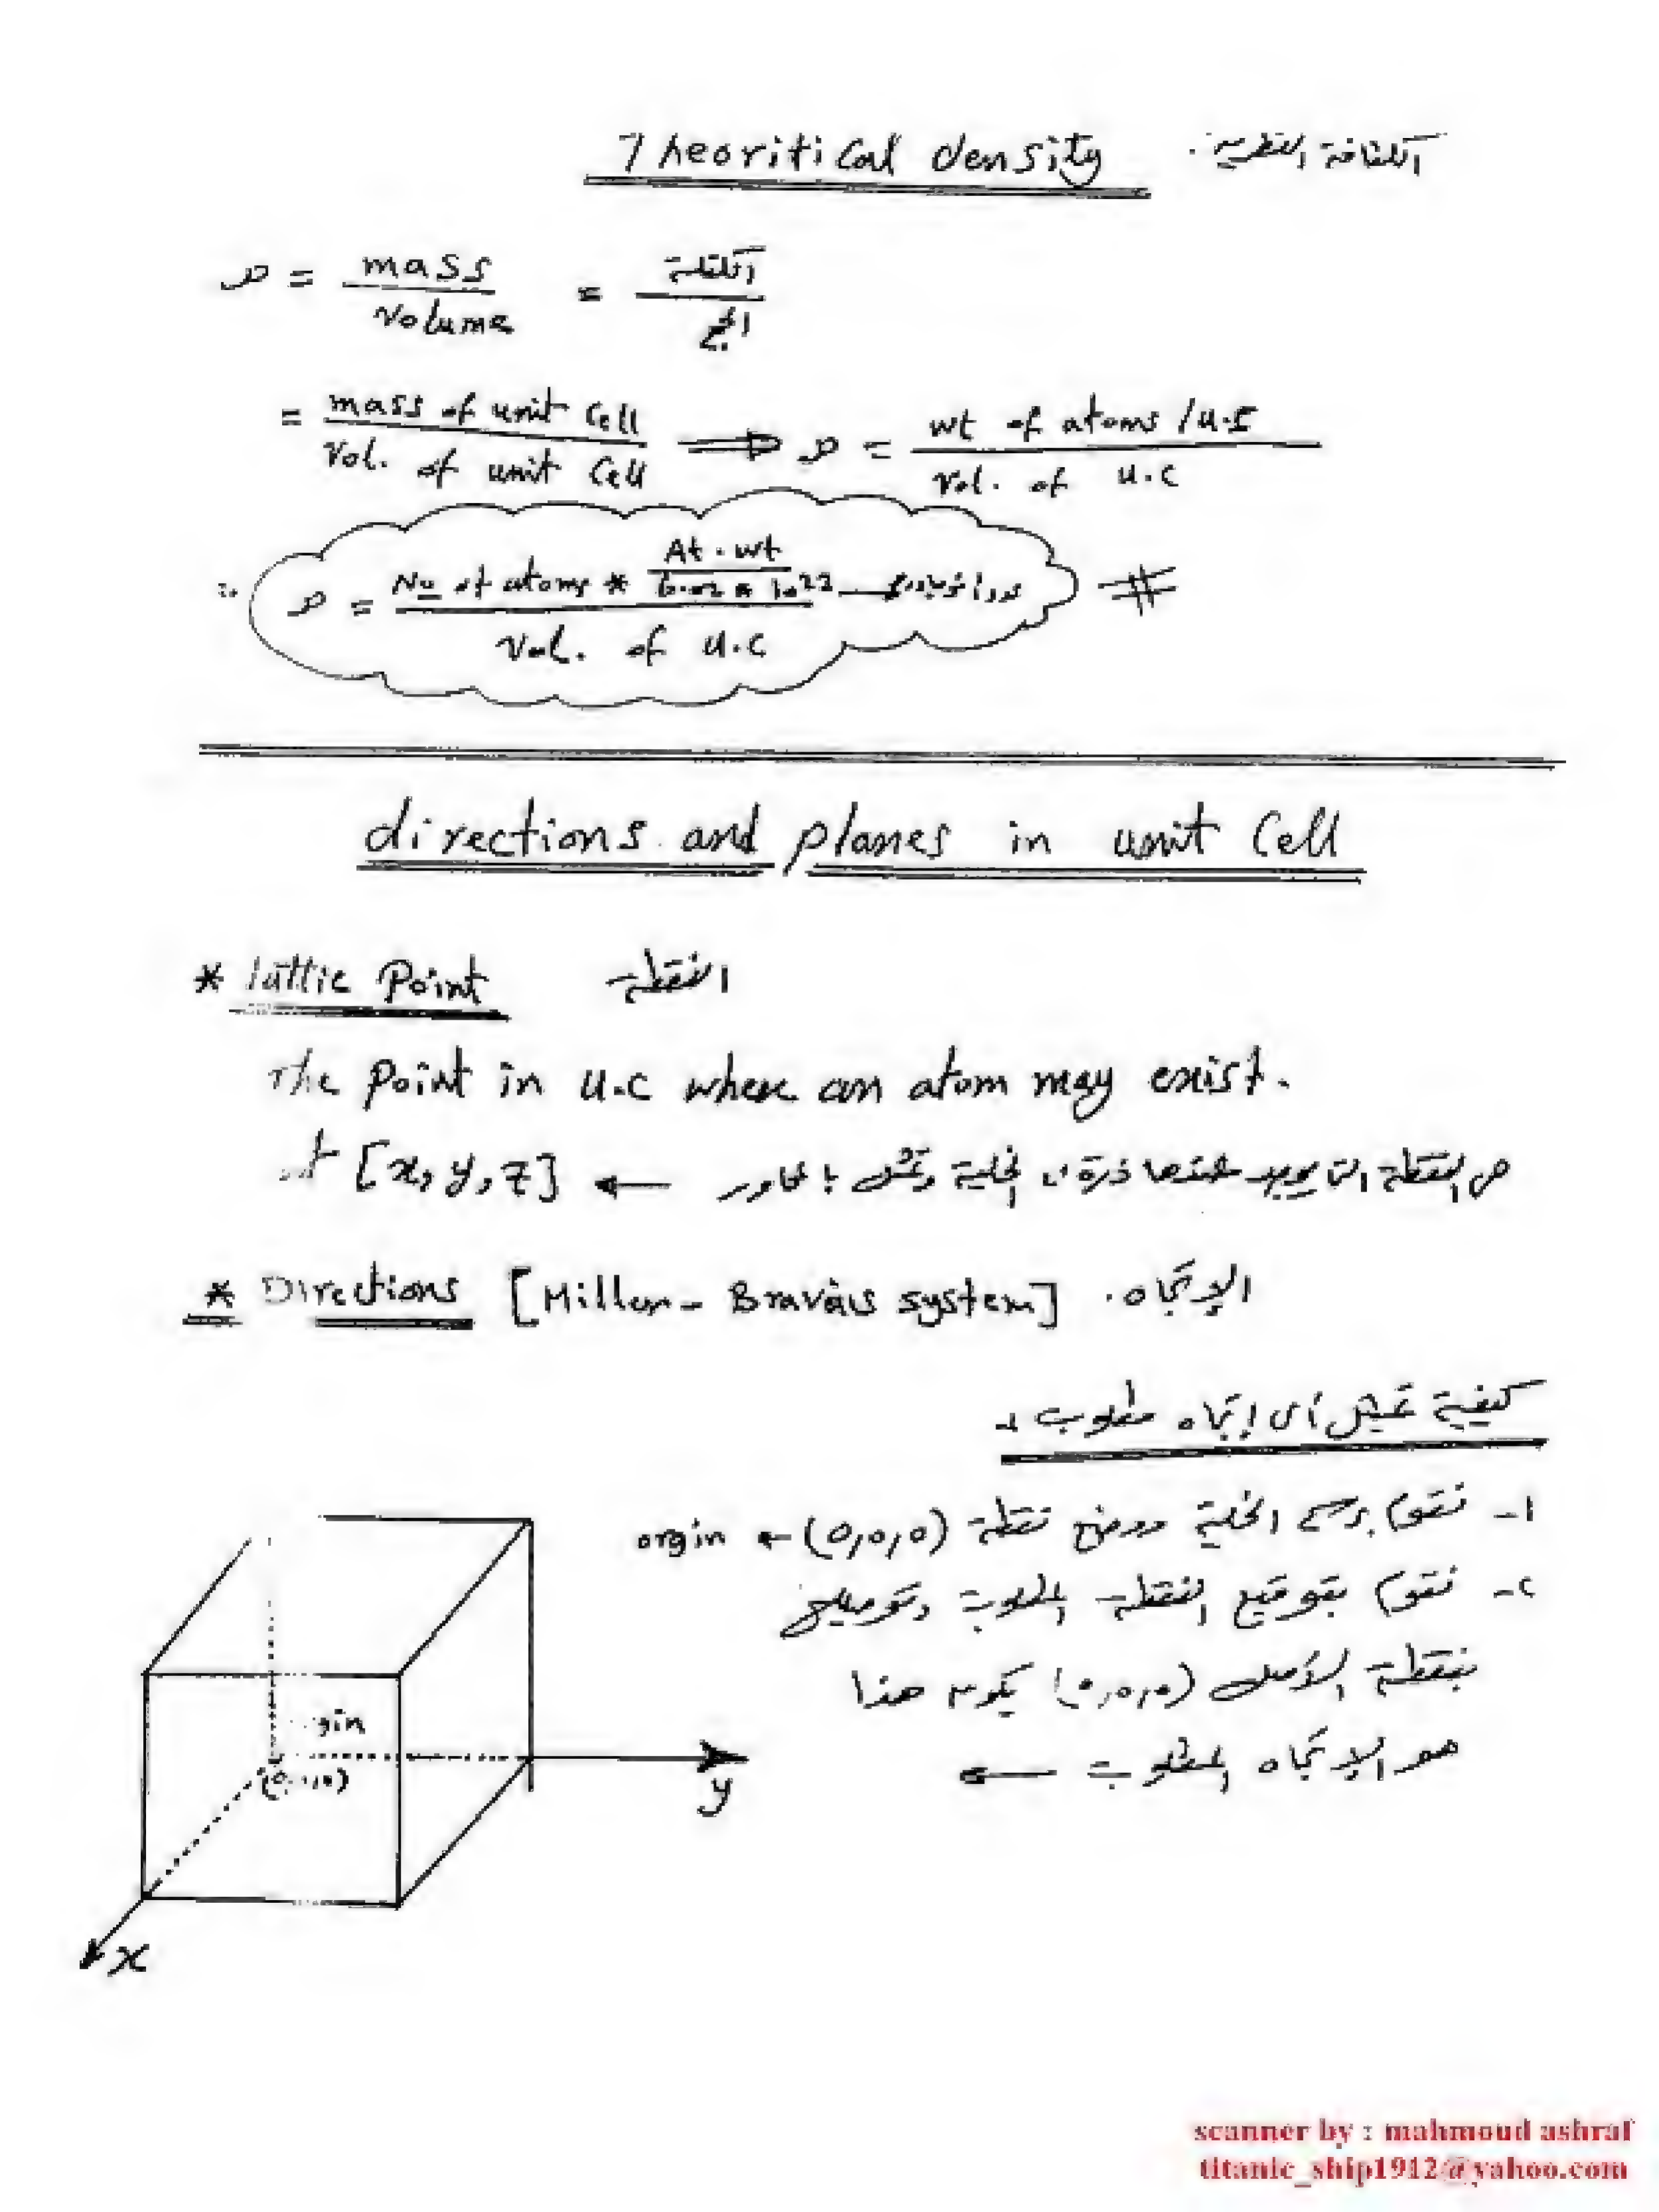 Theoritical density الكثافة النظرية.
ρ = mass / volume = الكتلة / الحجم
= mass of unit Cell / Vol. of unit Cell ⟹ ρ = wt of atoms /u.c / vol. of u.c
∴ ρ = No of atoms * At.wt / 6.02 * 10²³ / Vol. of u.c #
directions and planes in unit Cell
* lattic Point النقطة
The point in u.c where an atom may exist.
at [x, y, z] ← هى النقطة التى يوجد عندها ذرة فى الخلية وتمثل بالمحاور
* Directions [Miller - Bravais system] الإتجاه.
كيفية تمثيل أى إتجاه مطلوب :-
١- نقوم برسم الخلية ووضع نقطة (0,0,0) ← orgin
٢- نقوم بتوقيع النقطة المطلوبة وتوصيلها
بنقطة الأصل (0,0,0) يكون هذا
هو الإتجاه المطلوب ←
(0,0,0)
y
x
scanner by : mahmoud ashraf
titanic_ship1912@yahoo.com